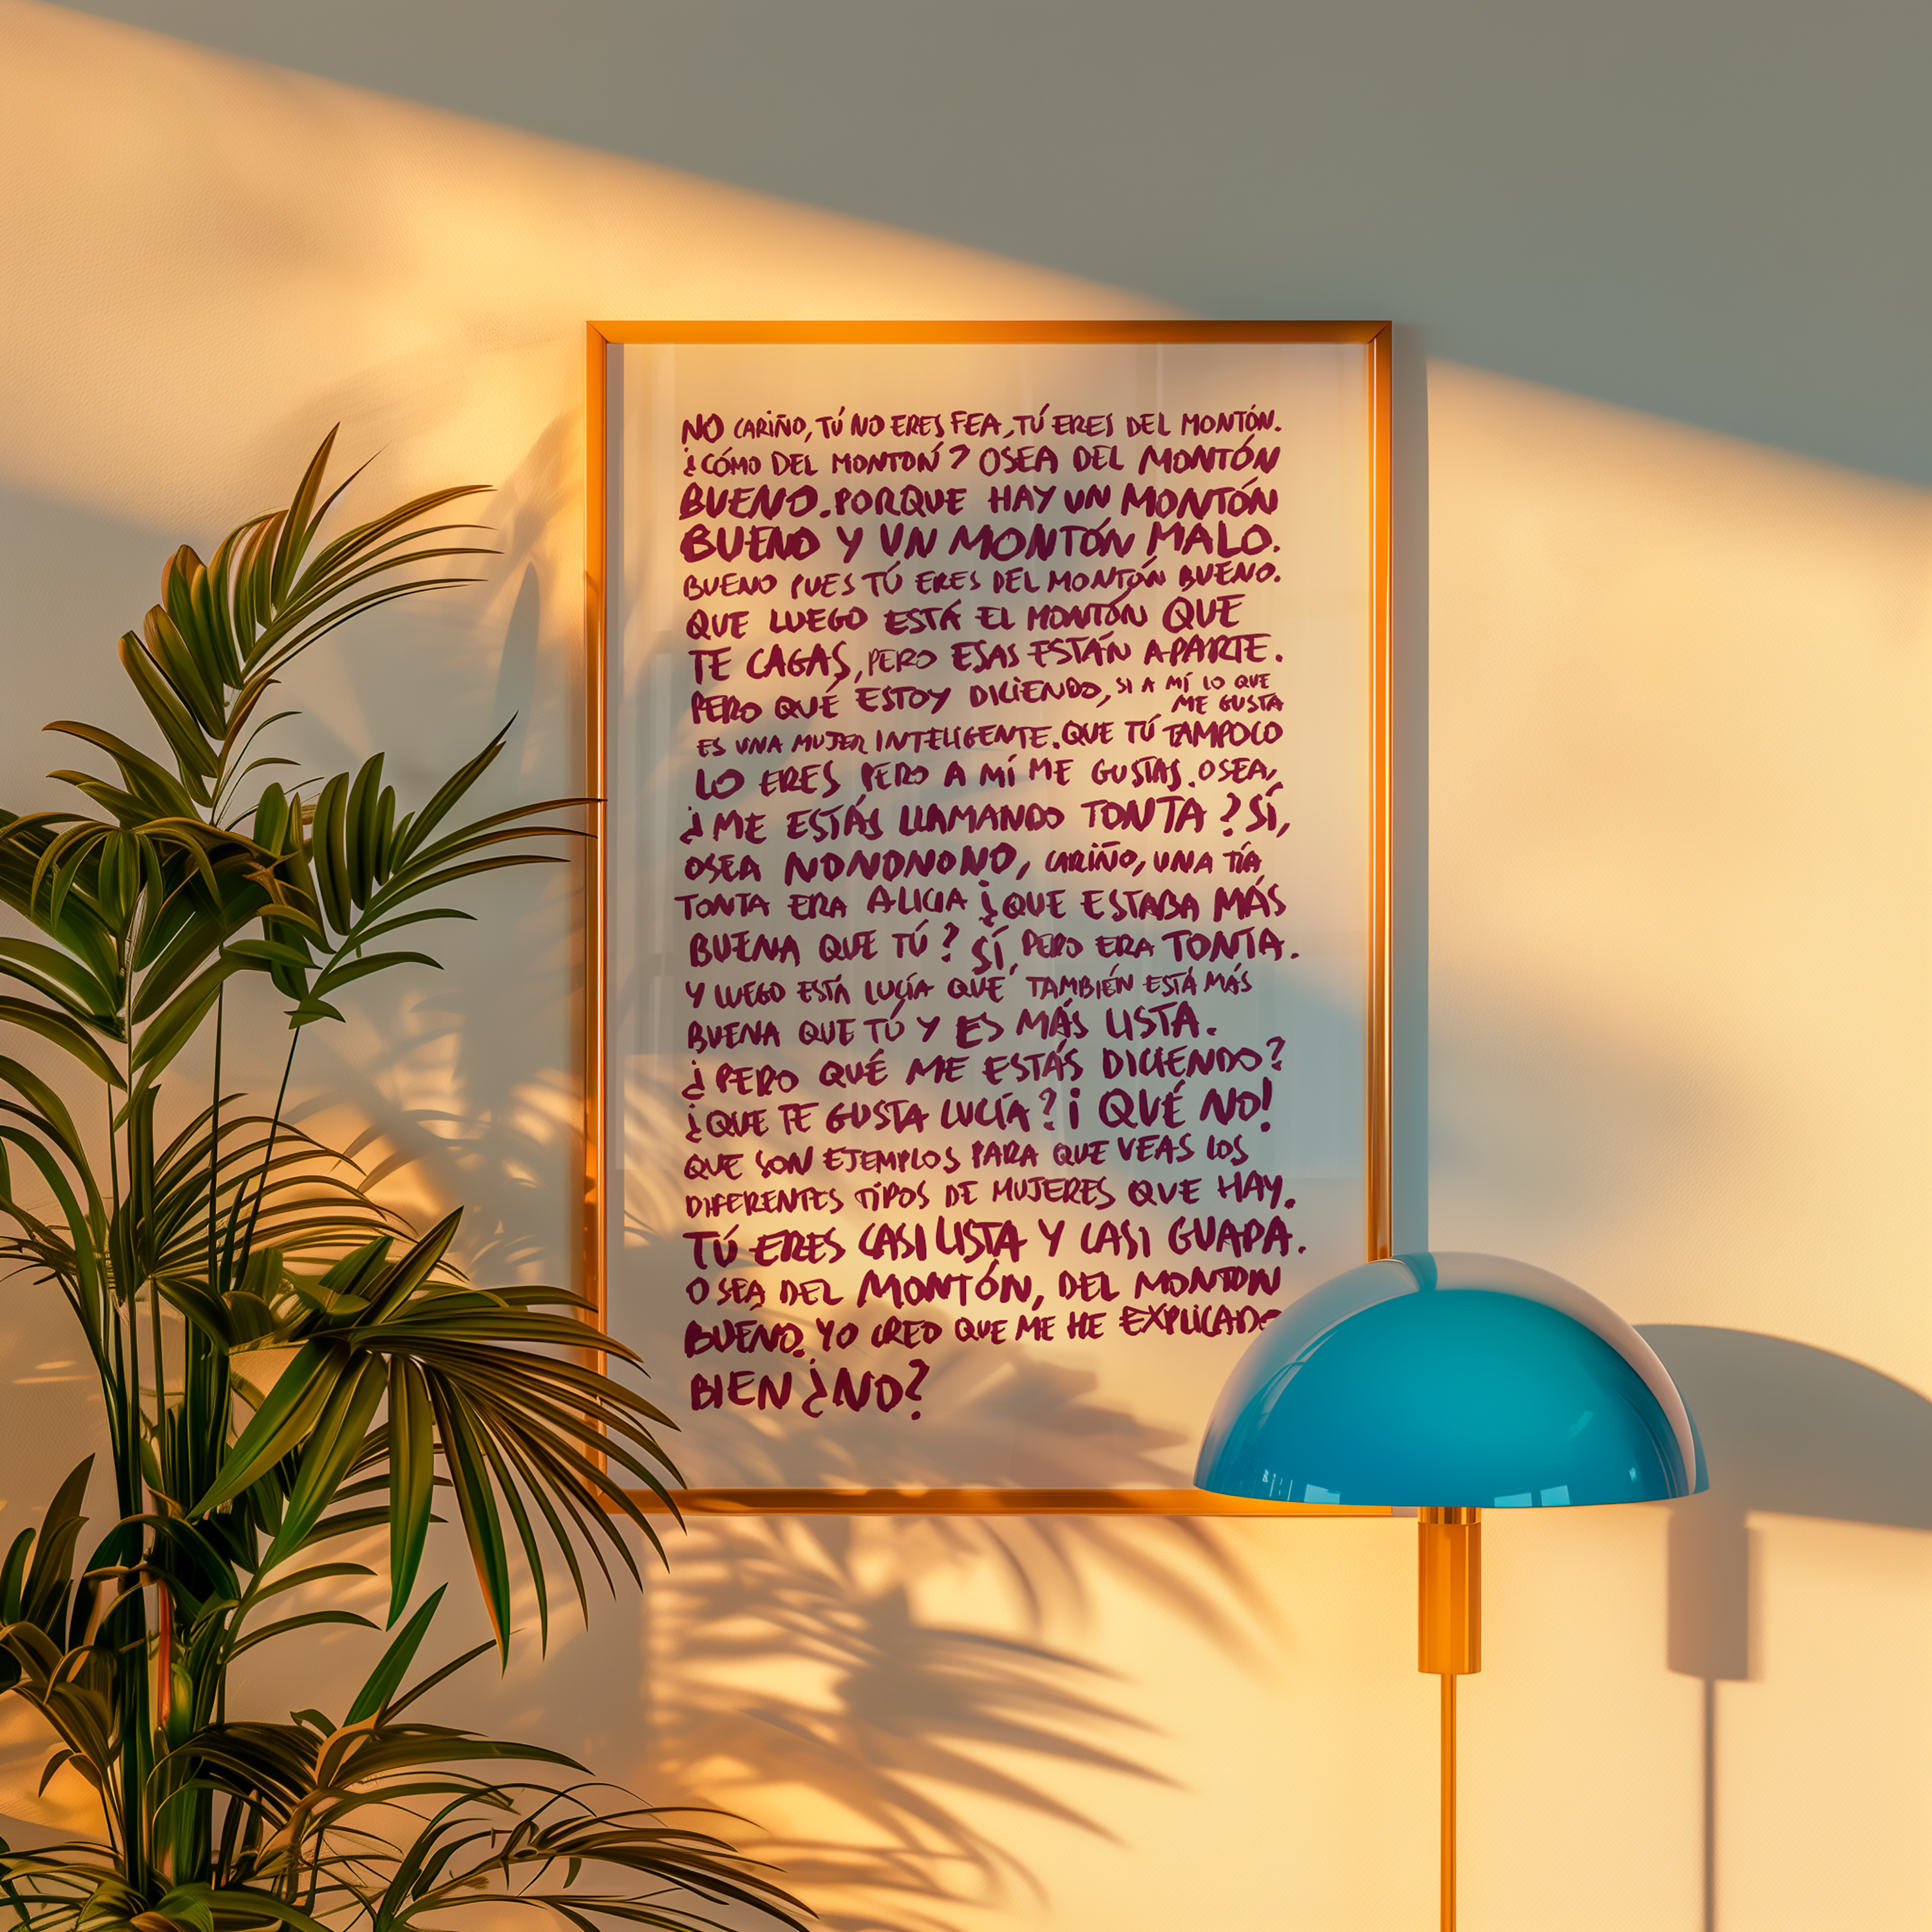 NO CARIÑO, TÚ NO ERES FEA, TÚ ERES DEL MONTÓN.
¿CÓMO DEL MONTÓN? OSEA DEL MONTÓN
BUENO. PORQUE HAY UN MONTÓN
BUENO Y UN MONTÓN MALO.
BUENO PUES TÚ ERES DEL MONTÓN BUENO.
QUE LUEGO ESTÁ EL MONTÓN QUE
TE CAGAS, PERO ESAS ESTÁN APARTE.
PERO QUÉ ESTOY DICIENDO, SI A MÍ LO QUE
ME GUSTA
ES UNA MUJER INTELIGENTE. QUE TÚ TAMPOCO
LO ERES PERO A MÍ ME GUSTAS. OSEA,
¿ME ESTÁS LLAMANDO TONTA? SÍ,
OSEA NONONONO, CARIÑO, UNA TÍA
TONTA ERA ALICIA ¿QUE ESTABA MÁS
BUENA QUE TÚ? SÍ, PERO ERA TONTA.
Y LUEGO ESTÁ LUCÍA QUE TAMBIÉN ESTÁ MÁS
BUENA QUE TÚ Y ES MÁS LISTA.
¿PERO QUÉ ME ESTÁS DICIENDO?
¿QUE TE GUSTA LUCÍA? ¡QUÉ NO!
QUE SON EJEMPLOS PARA QUE VEAS LOS
DIFERENTES TIPOS DE MUJERES QUE HAY.
TÚ ERES CASI LISTA Y CASI GUAPA.
OSEA DEL MONTÓN, DEL MONTON
BUENO. YO CREO QUE ME HE EXPLICADO
BIEN ¿NO?